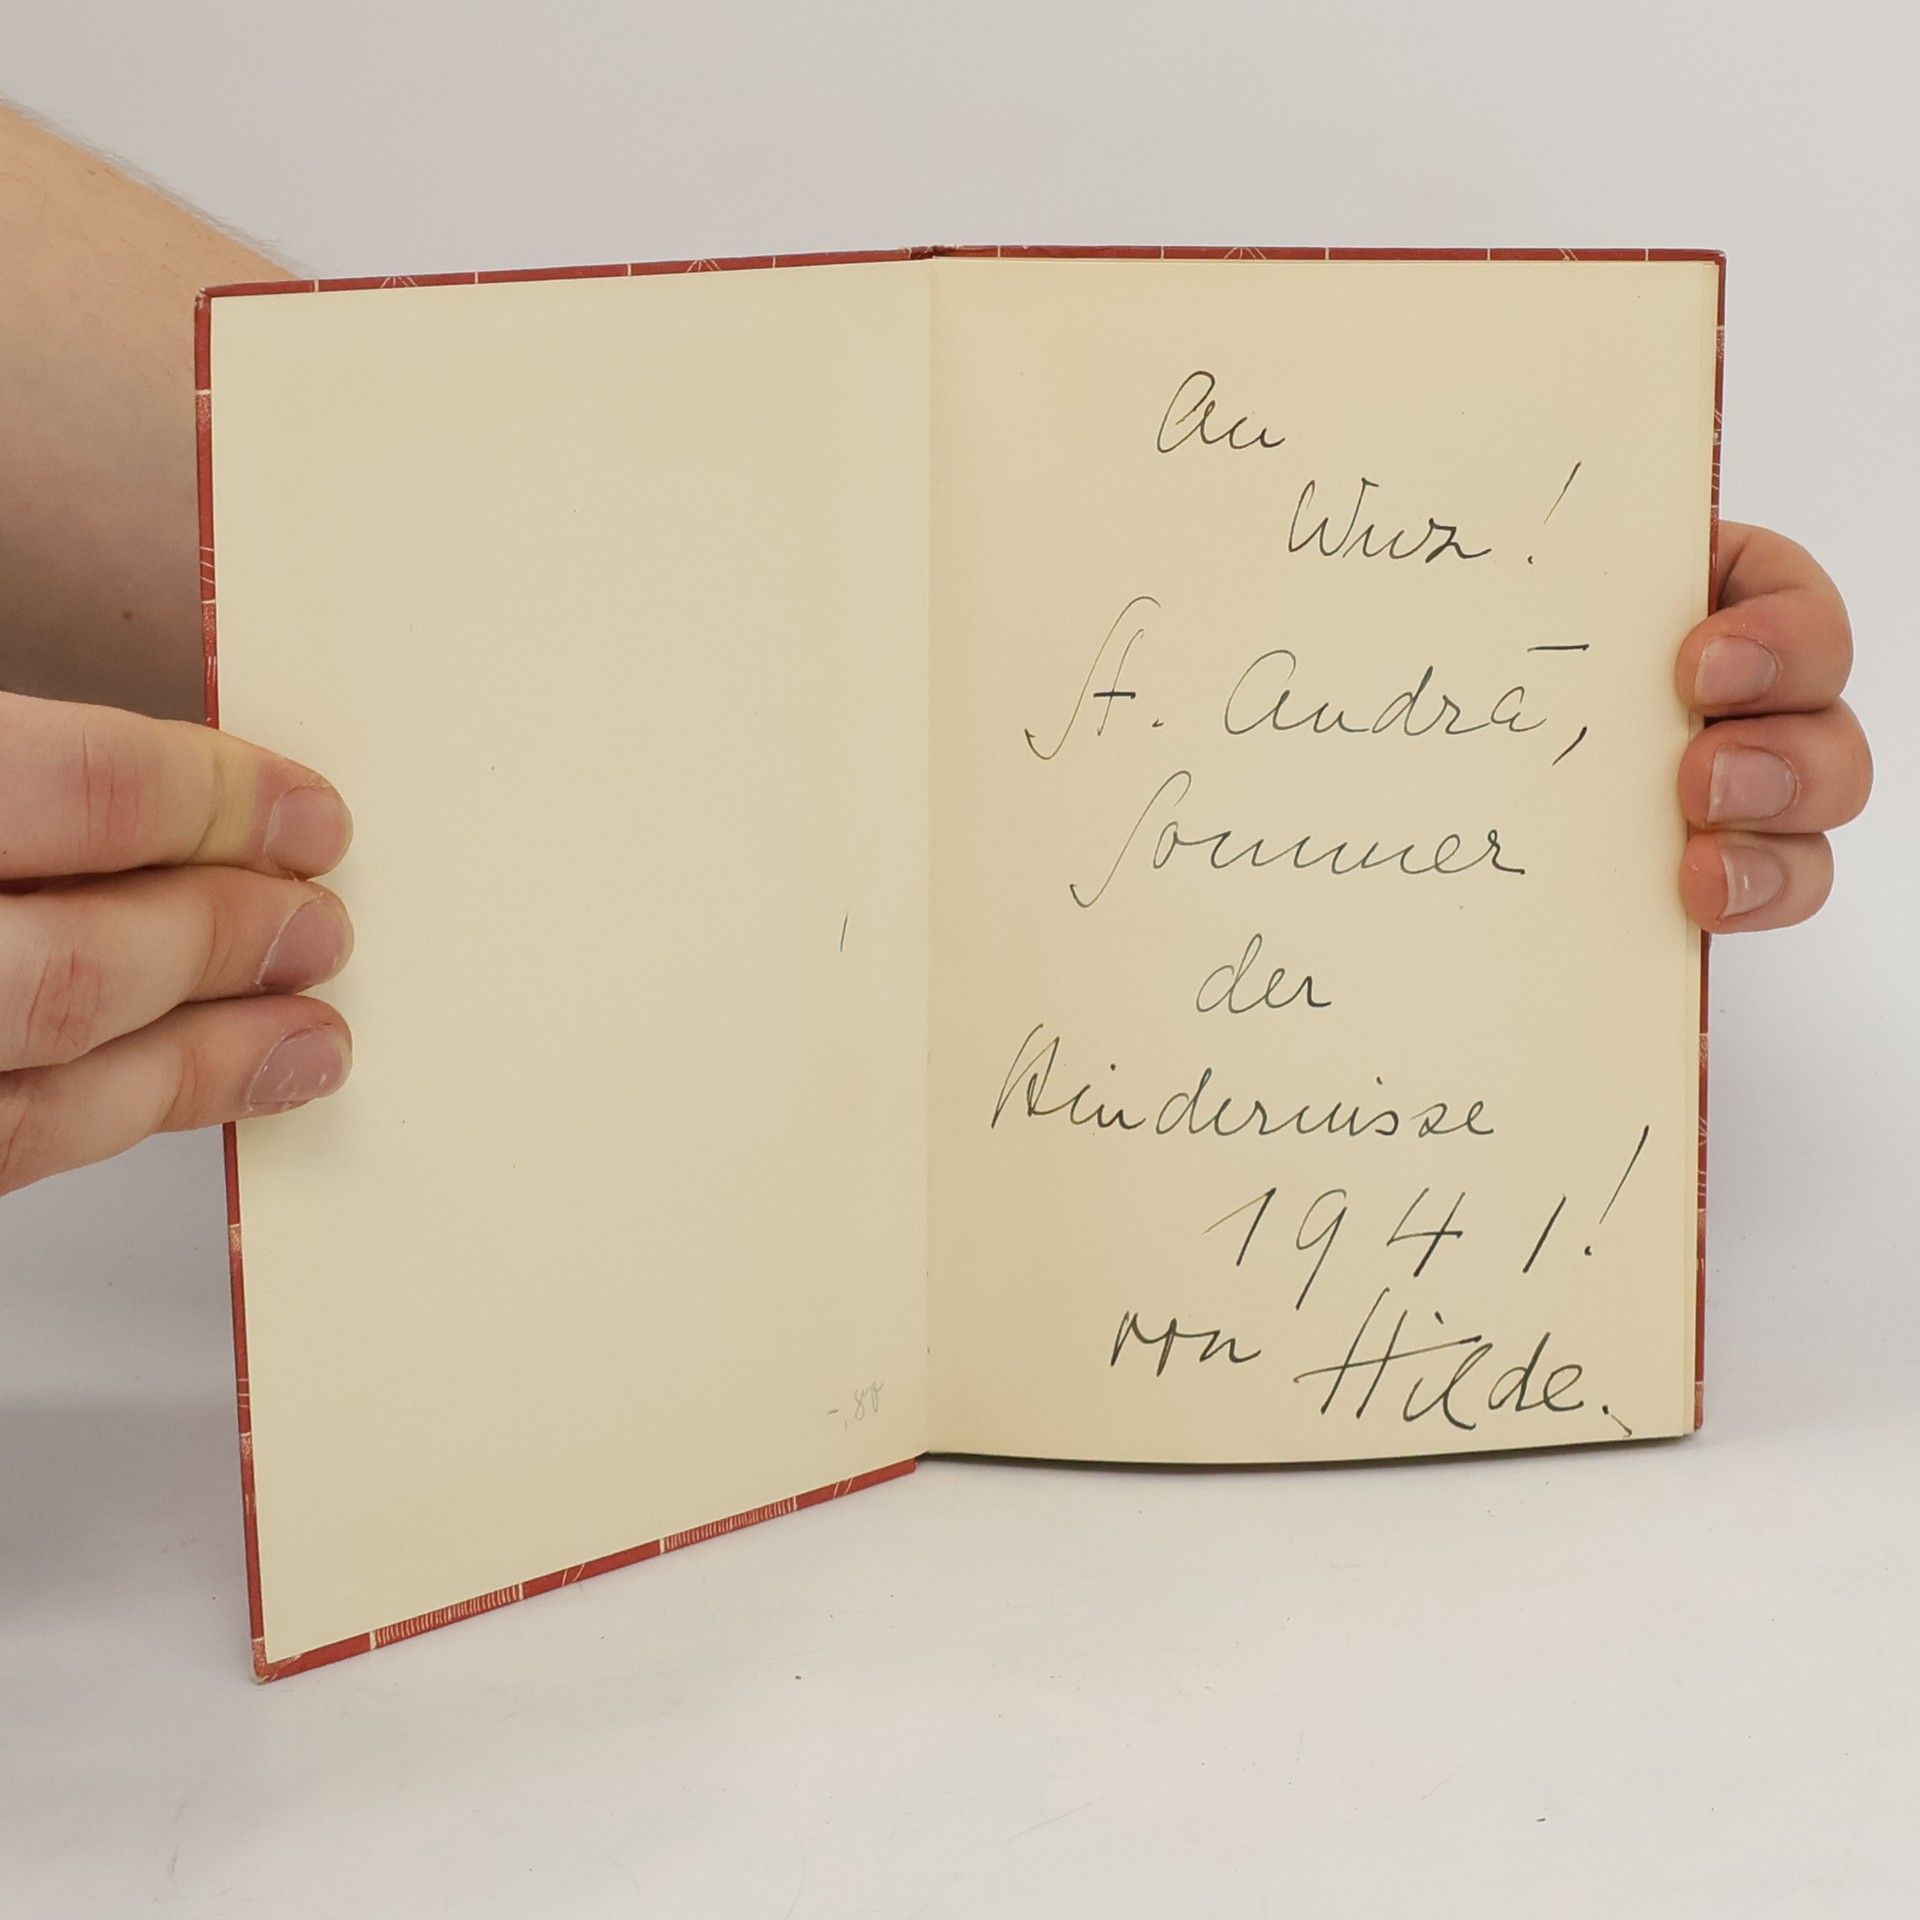 -.80
An
Wurz!
St. Andrä,
Sommer
der
Hindernisse
1941!
von Hilde.